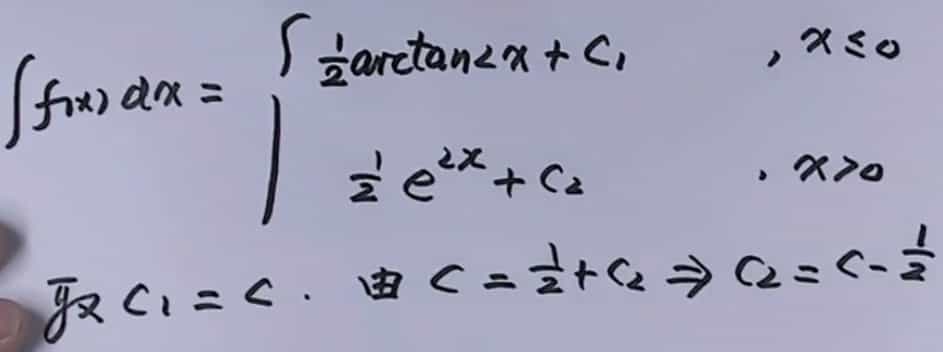 ∫f(x)dx = { ½arctan2x + C₁ , x≤0
½e²ˣ + C₂ , x>0
取 C₁ = C . 由 C = ½ + C₂ ⇒ C₂ = C - ½